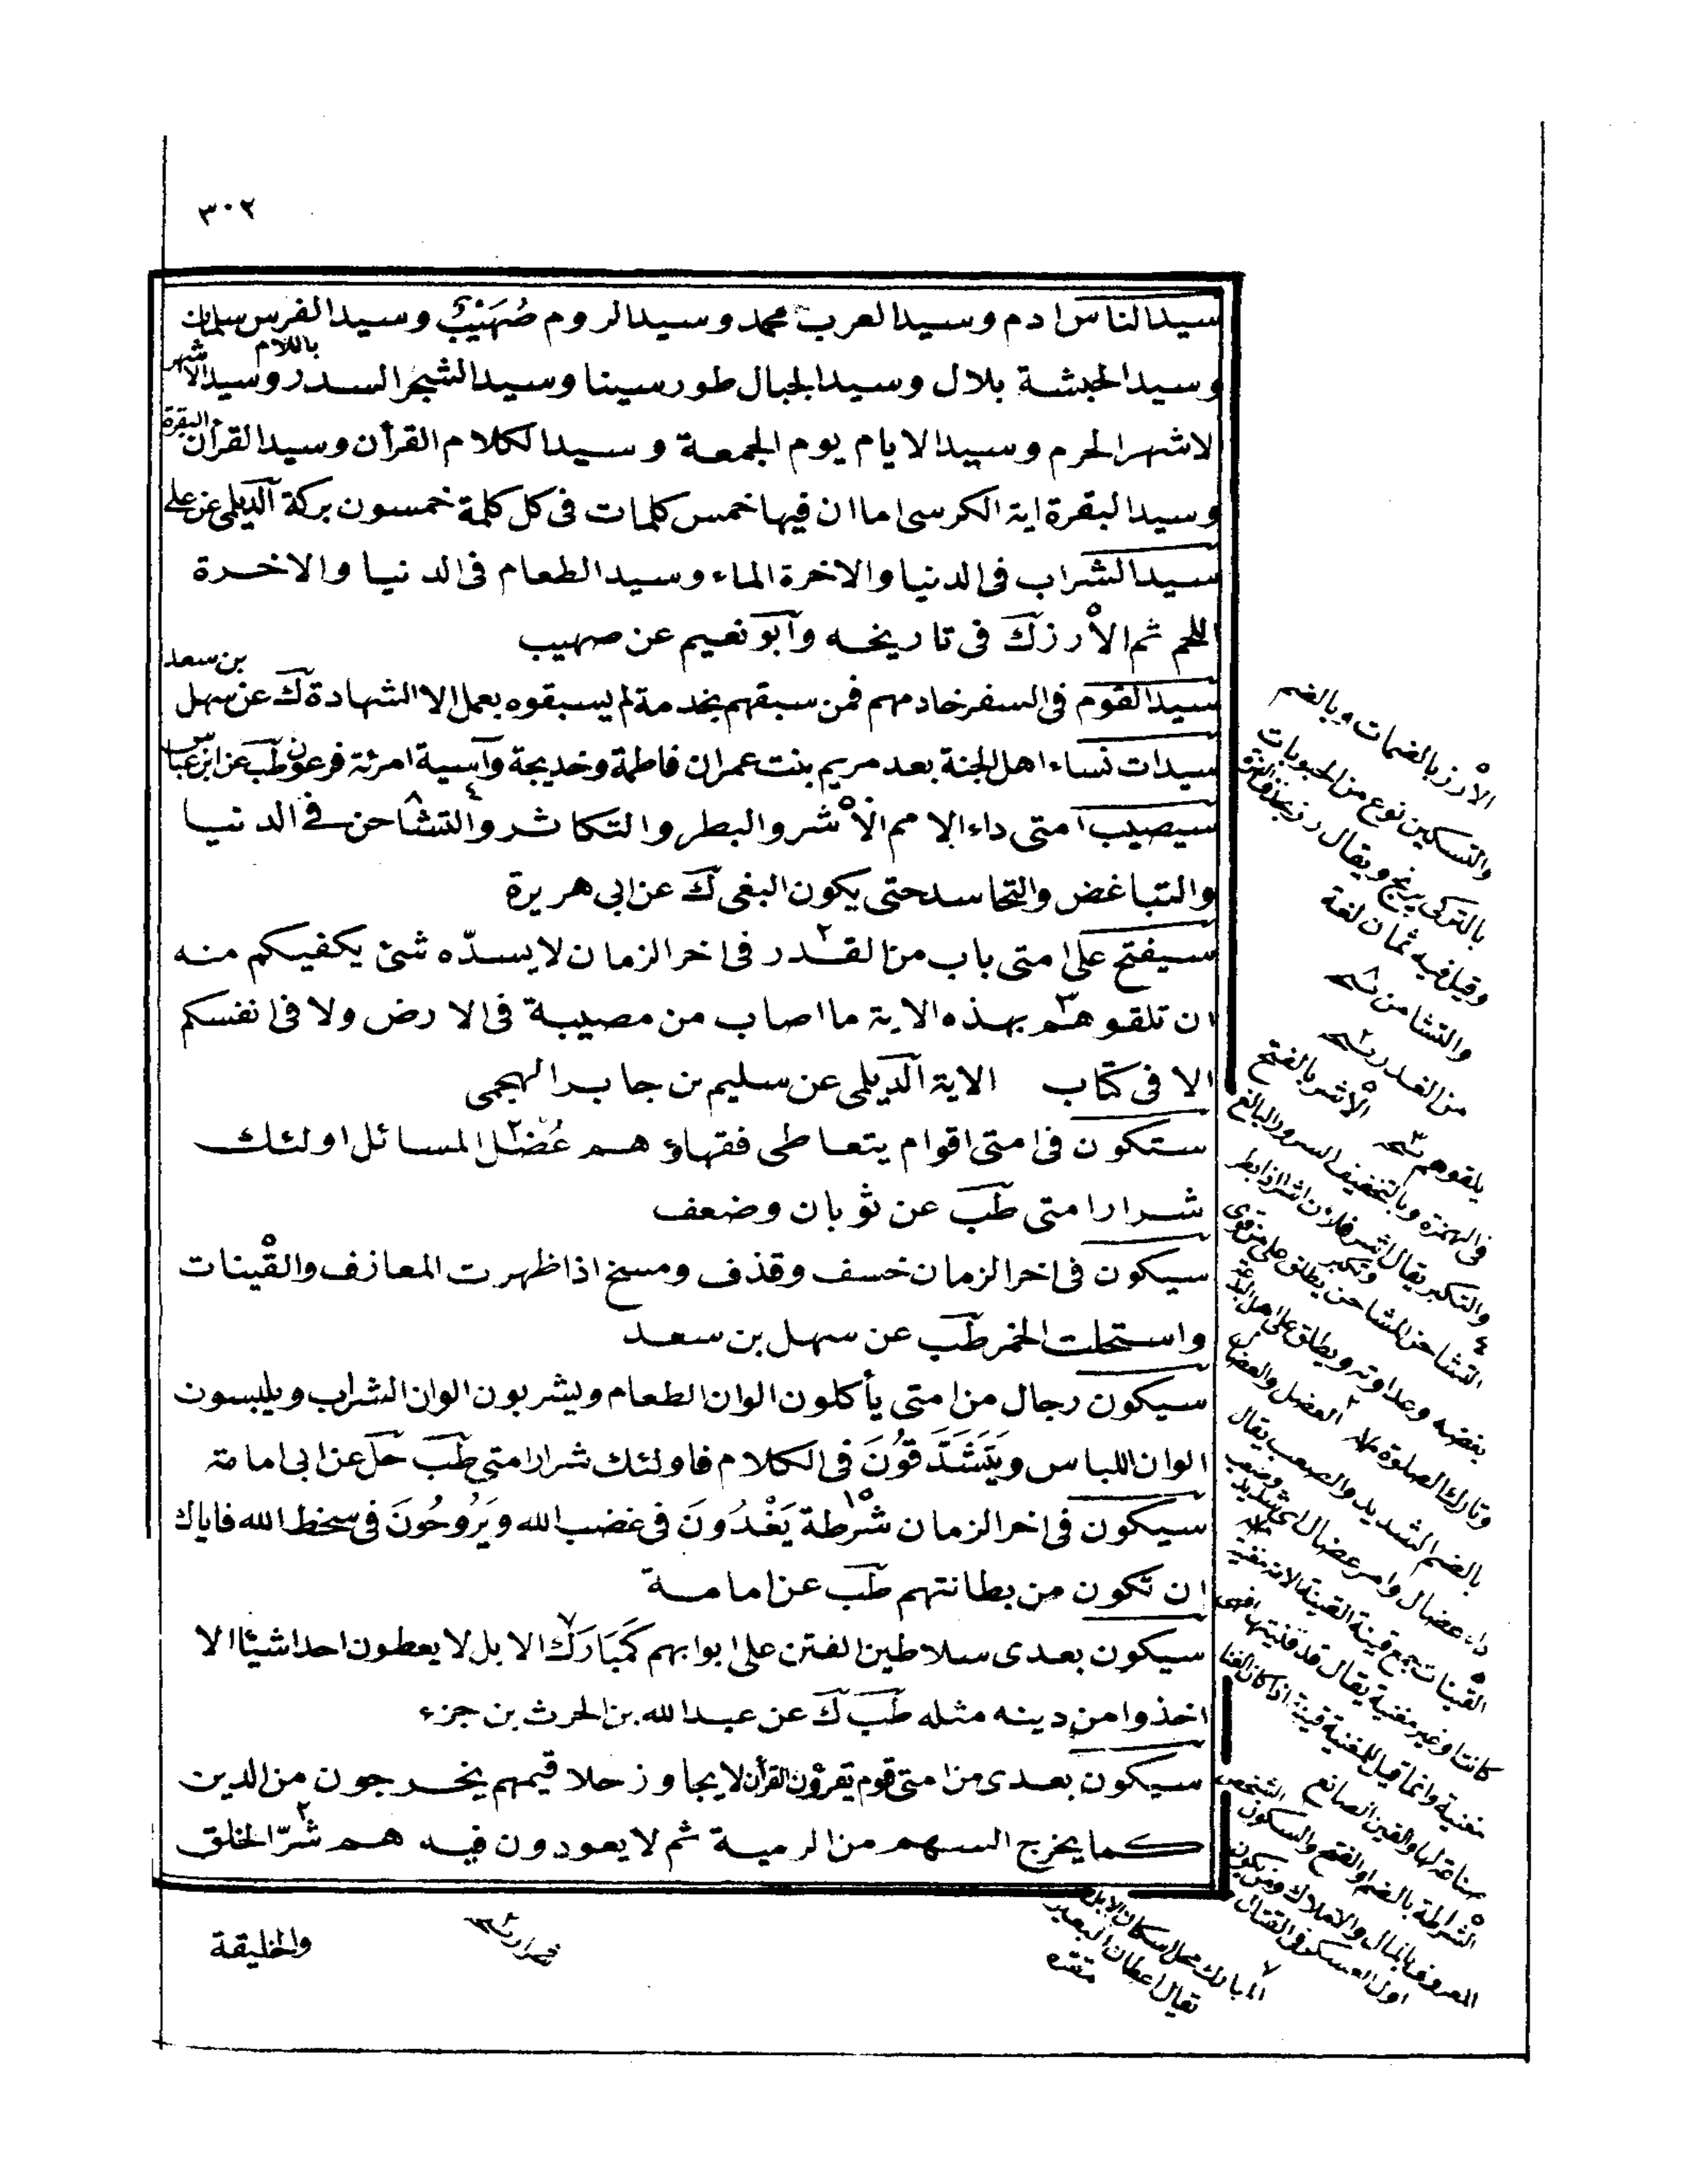 ٣٠٢
سيد الناس ادم وسيد العرب محمد وسيد الروم صُهَيْبٌ وسيد الفرس سلمان
باللام
وسيد الحبشة بلال وسيد الجبال طور سينا وسيد الشجر السدر وسيد الاشهر
الاشهر الحرم وسيد الايام يوم الجمعة وسيد الكلام القرأن وسيد القرأن البقرة
وسيد البقرة اية الكرسى اما ان فيها خمس كلمات فى كل كلمة خمسون بركة الديلمى عن على
سيد الشراب فى الدنيا والاخرة الماء وسيد الطعام فى الدنيا والاخرة
اللحم ثم الأرز ك فى تاريخه وابو نعيم عن صهيب
سيد القوم فى السفر خادمهم فمن سبقهم بخدمة لم يسبقوه بعمل الا الشهادة ك عن سهل بن سعد
سيدات نساء اهل الجنة بعد مريم بنت عمران فاطمة وخديجة وآسية امرئة فرعون طب عن ابن عباس
سيصيب امتى داء الامم الأشر والبطر والتكاثر والتشاحن فى الدنيا
والتباغض والتحاسد حتى يكون البغى ك عن ابى هريرة
سيفتح على امتى باب من القدر فى اخر الزمان لا يسدّه شئ يكفيكم منه
ان تلقوهم بهذه الاية ما اصاب من مصيبة فى الارض ولا فى انفسكم
الا فى كتاب الاية الديلمى عن سليم بن جابر الهجمى
ستكون فى امتى اقوام يتعاطى فقهاؤهم عُضَل المسائل اولئك
شرار امتى طب عن ثوبان وضعف
سيكون فى اخر الزمان خسف وقذف ومسخ اذا ظهرت المعازف والقينات
واستحلت الخمر طب عن سهل بن سعد
سيكون رجال من امتى يأكلون الوان الطعام ويشربون الوان الشراب ويلبسون
الوان اللباس ويَتَشَدَّقُونَ فى الكلام فاولئك شرار امتى طب حل عن ابى امامة
سيكون فى اخر الزمان شرطة يَغْدُونَ فى غضب الله ويَرُوحُونَ فى سخط الله فاياك
ان تكون من بطانتهم طب عن امامة
سيكون بعدى سلاطين الفتن على ابوابهم كَمَبَارَك الابل لا يعطون احدا شيئا الا
اخذوا من دينه مثله طب ك عن عبد الله بن الحرث بن جزء
سيكون بعدى من امتى قوم يقرؤن القرأن لا يجاوز حلاقيمهم يخرجون من الدين
كما يخرج السهم من الرمية ثم لا يعودون فيه هم شرّ الخلق
والخليقة
الأرز بالضمات وبالضم
والتسكين نوع من الحبوبات
بالتركى برنج ويقال رز بحذف
وقيل فيه ثمان لغة
والتشا من نسخه
من الغدر نسخه
يلقوهم نسخه
الأشر بالفتح
فى الهمزة وبالتخفيف السرور البالغ
والتكبر يقال اشر فلان اشرا اذا بطر
وتكبر
التشاحن المشاحن يطلق على من قوى
بغضه وعداوته ويطلق على اهل البدعة
وتارك الصلوة العضل والعضال
بالضم الشديد والصعب يقال
داء عضال وامر عضال اى شديد وصعب
القينات جمع قينة القينة الامة مغنية
كانت او غير مغنية يقال قد قينتها
مغنية وانما قيل للمغنية قينة اذا كان الغنا
صناعة لها والقين الصانع
الشرطة بالضم او الفتح والسكون الشخص
المعروف بالمال والاملاك ومن يكون
اول العسكر فى القتال
المبارك محل اسكان الابل
يقال اعطان البعير
مقره